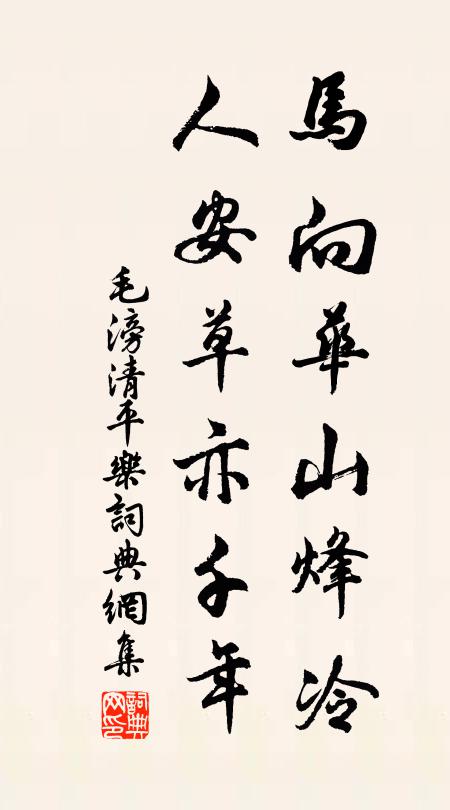 馬向華山烽冷
人安草亦千年
毛滂清平樂詞典網集
詞典网印